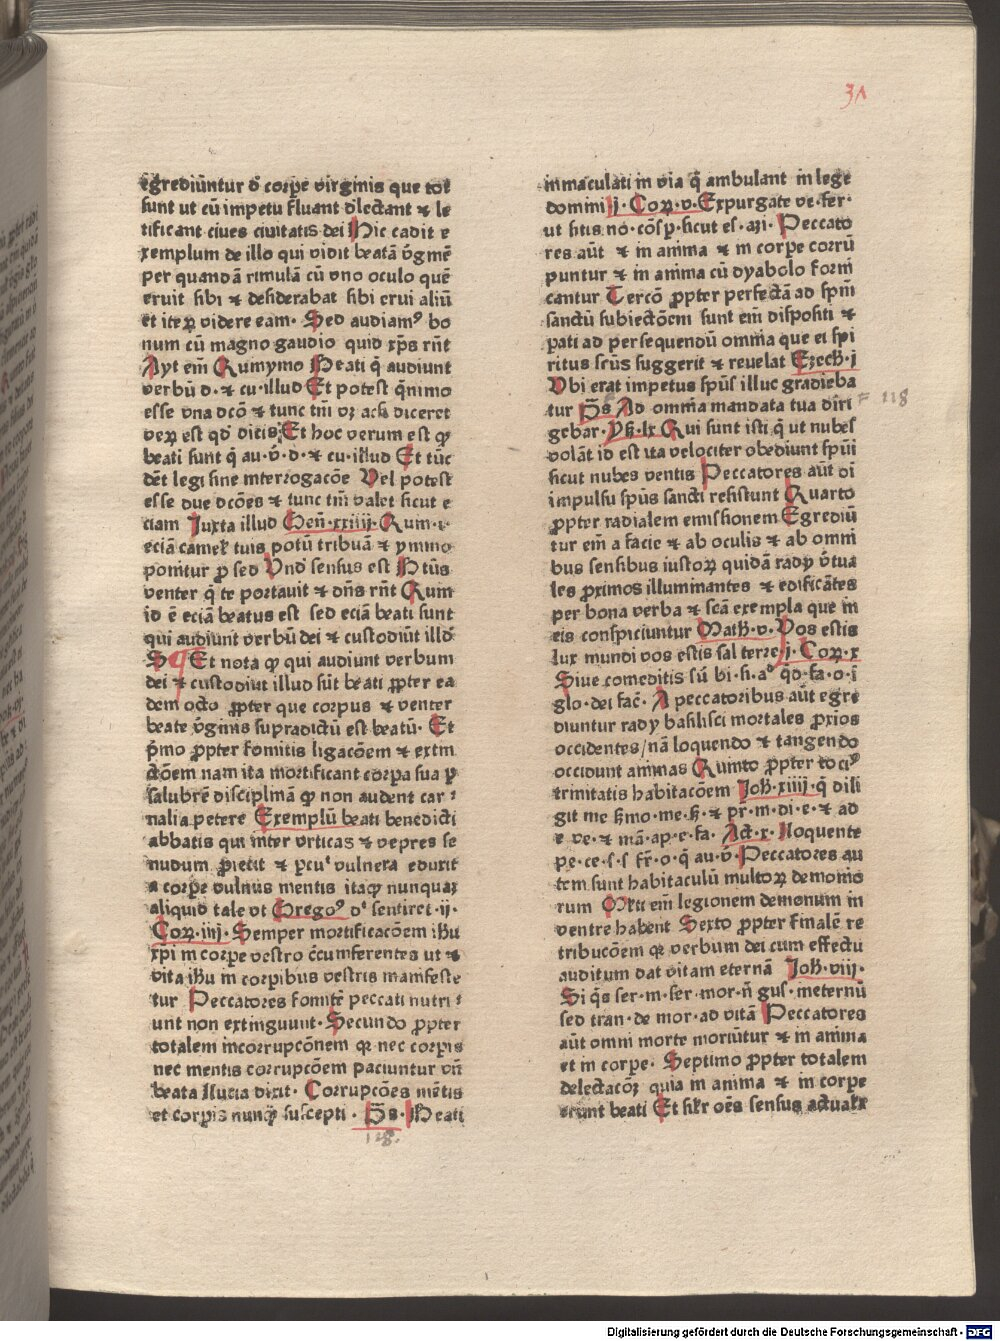 31
egrediūntur d̄ corpe virginis que tot
sunt ut cū impetu fluant dlectant ⁊ le
tificant ciues ciuitatis dei Hic cadit e
xemplum de illo qui vidit beatā v̄gınē
per quandā rimulā cū vno oculo quē
eruit sibi ⁊ desiderabat sibi erui aliū
et iteꝝ videre eam· Sed audiamꝰ bo
num cū magno gaudio quid xp̄s rn̄t
Ayt em̄ Quınymo Beati q̄ audiunt
verbū d· ⁊ cu·illud Et potest q̄nimo
esse vna dcō ⁊ tunc tm̄ vꝫ ac̄ si diceret
veꝝ est qd̄ dicis Et hoc verum est ꝙ
beati sunt q̄ au·v̄·d·⁊ cu·illud Et tūc
dēt legi sine interrogacōe Vel potest
esse due dcōes ⁊ tunc tm̄ valet sicut e
ciam Juxta illud Gen̄·xxiiij·Quin·⁊
eciā camel̄ tuis potū tribuā ⁊ ymmo
ponitur ꝓ sed Vnd̄ sensus est Btūs
venter q̄ te portauit ⁊ dn̄s rn̄t Quin
id ē eciā beatus est sed eciā beati sunt
qui audiunt verbū dei ⁊ custodiūt illd̄
Et nota ꝙ qui audiunt verbum
dei ⁊ custodiut illud sūt beati ꝓpter ea
dem octo ꝓpter que corpus ⁊ venter
beate v̄ginis supradictū est beatū· Et
p̄mo ꝓpter fomitis ligacōem ⁊ extin
ctōem nam ita mortificant corpa sua ꝑ
salubrē disciplinā ꝙ non audent car⸗
nalia petere Exemplū beati benedicti
abbatis qui inter vrticas ⁊ vepres se
nudum ꝓiecit ⁊ ꝑcuͭ vulnera eduxit
a corpe vulnus mentis itaqꝫ nunquaꝫ
aliquid tale vt Gregoꝰ dͭ sentiret·ij·
Coꝝ·iiij·Semper mortificacōem ihu
xpi in corpe vestro c̄cumferentes ut ⁊
vita ihu in corpibus vestris manifeste
tur Peccatores fomitē peccati nutri⸗
unt non extinguunt·Secundo ꝓpter
totalem incorrupcōnem qꝛ nec corpis
nec mentis corrupcōem paciuntur vn̄
beata Lucia dixit· Corrupcōes mētis
et corpis nunqꝫ suscepti· Ps·Beati
118.
inmaculati in via q̄ ambulant in lege
domini j·Coꝝ·v·Expurgate ve·fer·
ut sitis no·cōsp·sicut es·azi·Peccato
res aūt ⁊ in anima ⁊ in corpe corrū
puntur ⁊ in anima cū dyabolo forni
cantur Tercō ꝓpter perfectā ad spm̄
sanctū subiectōem sunt em̄ dispositi ⁊
pati ad persequendū omnia que ei spi
ritus scūs suggerit ⁊ reuelat Ezech·j
Vbi erat impetus spūs illuc gradieba
tur Ps Ad omnia mandata tua diri F 118
gebar·Ysa·lx Qui sunt isti q̄ ut nubes
volāt id est ita velociter obediunt spūi
sicut nubes ventis Peccatores aūt di
impulsu spūs sancti resistunt Quarto
ꝓpter radialem emissionem Egrediū
tur em̄ a facie ⁊ ab oculis ⁊ ab omni
bus sensibus iustoꝝ quidā radij v̄tua
les ꝓximos illuminantes ⁊ edificātes
per bona verba ⁊ scā exempla que in
eis conspiciuntur Math·v·Vos estis
lux mundi vos estis sal terre·j·Coꝝ·x
Siue comeditis sū bi·si·aͩ q̄d·fa·o·i
glo·dei fac̄· A peccatoribus aūt egre
diuntur radij basilisci mortales ꝓxios
occidentes/nā loquendo ⁊ tangendo
occidunt animas Quinto ꝓpter tociꝰ
trinitatis habitacōem Joh·xiiij·q̄ dili
git me s̄mo·me·s̄·⁊ pr̄·m·di·e·⁊ ad
e ve·⁊ mā·ap·e·fa· Act·x·Loquente
pe·ce·s·s fr̄·o·q̄ au·v̄·Peccatores au
tem sunt habitaculū multoꝝ demonio
rum Mlti em̄ legionem demonum in
ventre habent Sexto ꝓpter finalē re
tribucōem qꝛ verbum dei cum effectu
auditum dat vitam eternā Joh·viij·
Si q̄s ser·m·ser·mor·n̄ gus·ineternū
sed tran·de mor·ad vitā Peccatores
aūt omni morte moriūtur ⁊ in anima
et in corpe· Septimo ꝓpter totalem
delectacōꝫ quia in anima ⁊ in corpe
erunt beati Et sil̄r oēs sensus actualr̄
Digitalisierung gefördert durch die Deutsche Forschungsgemeinschaft - DFG